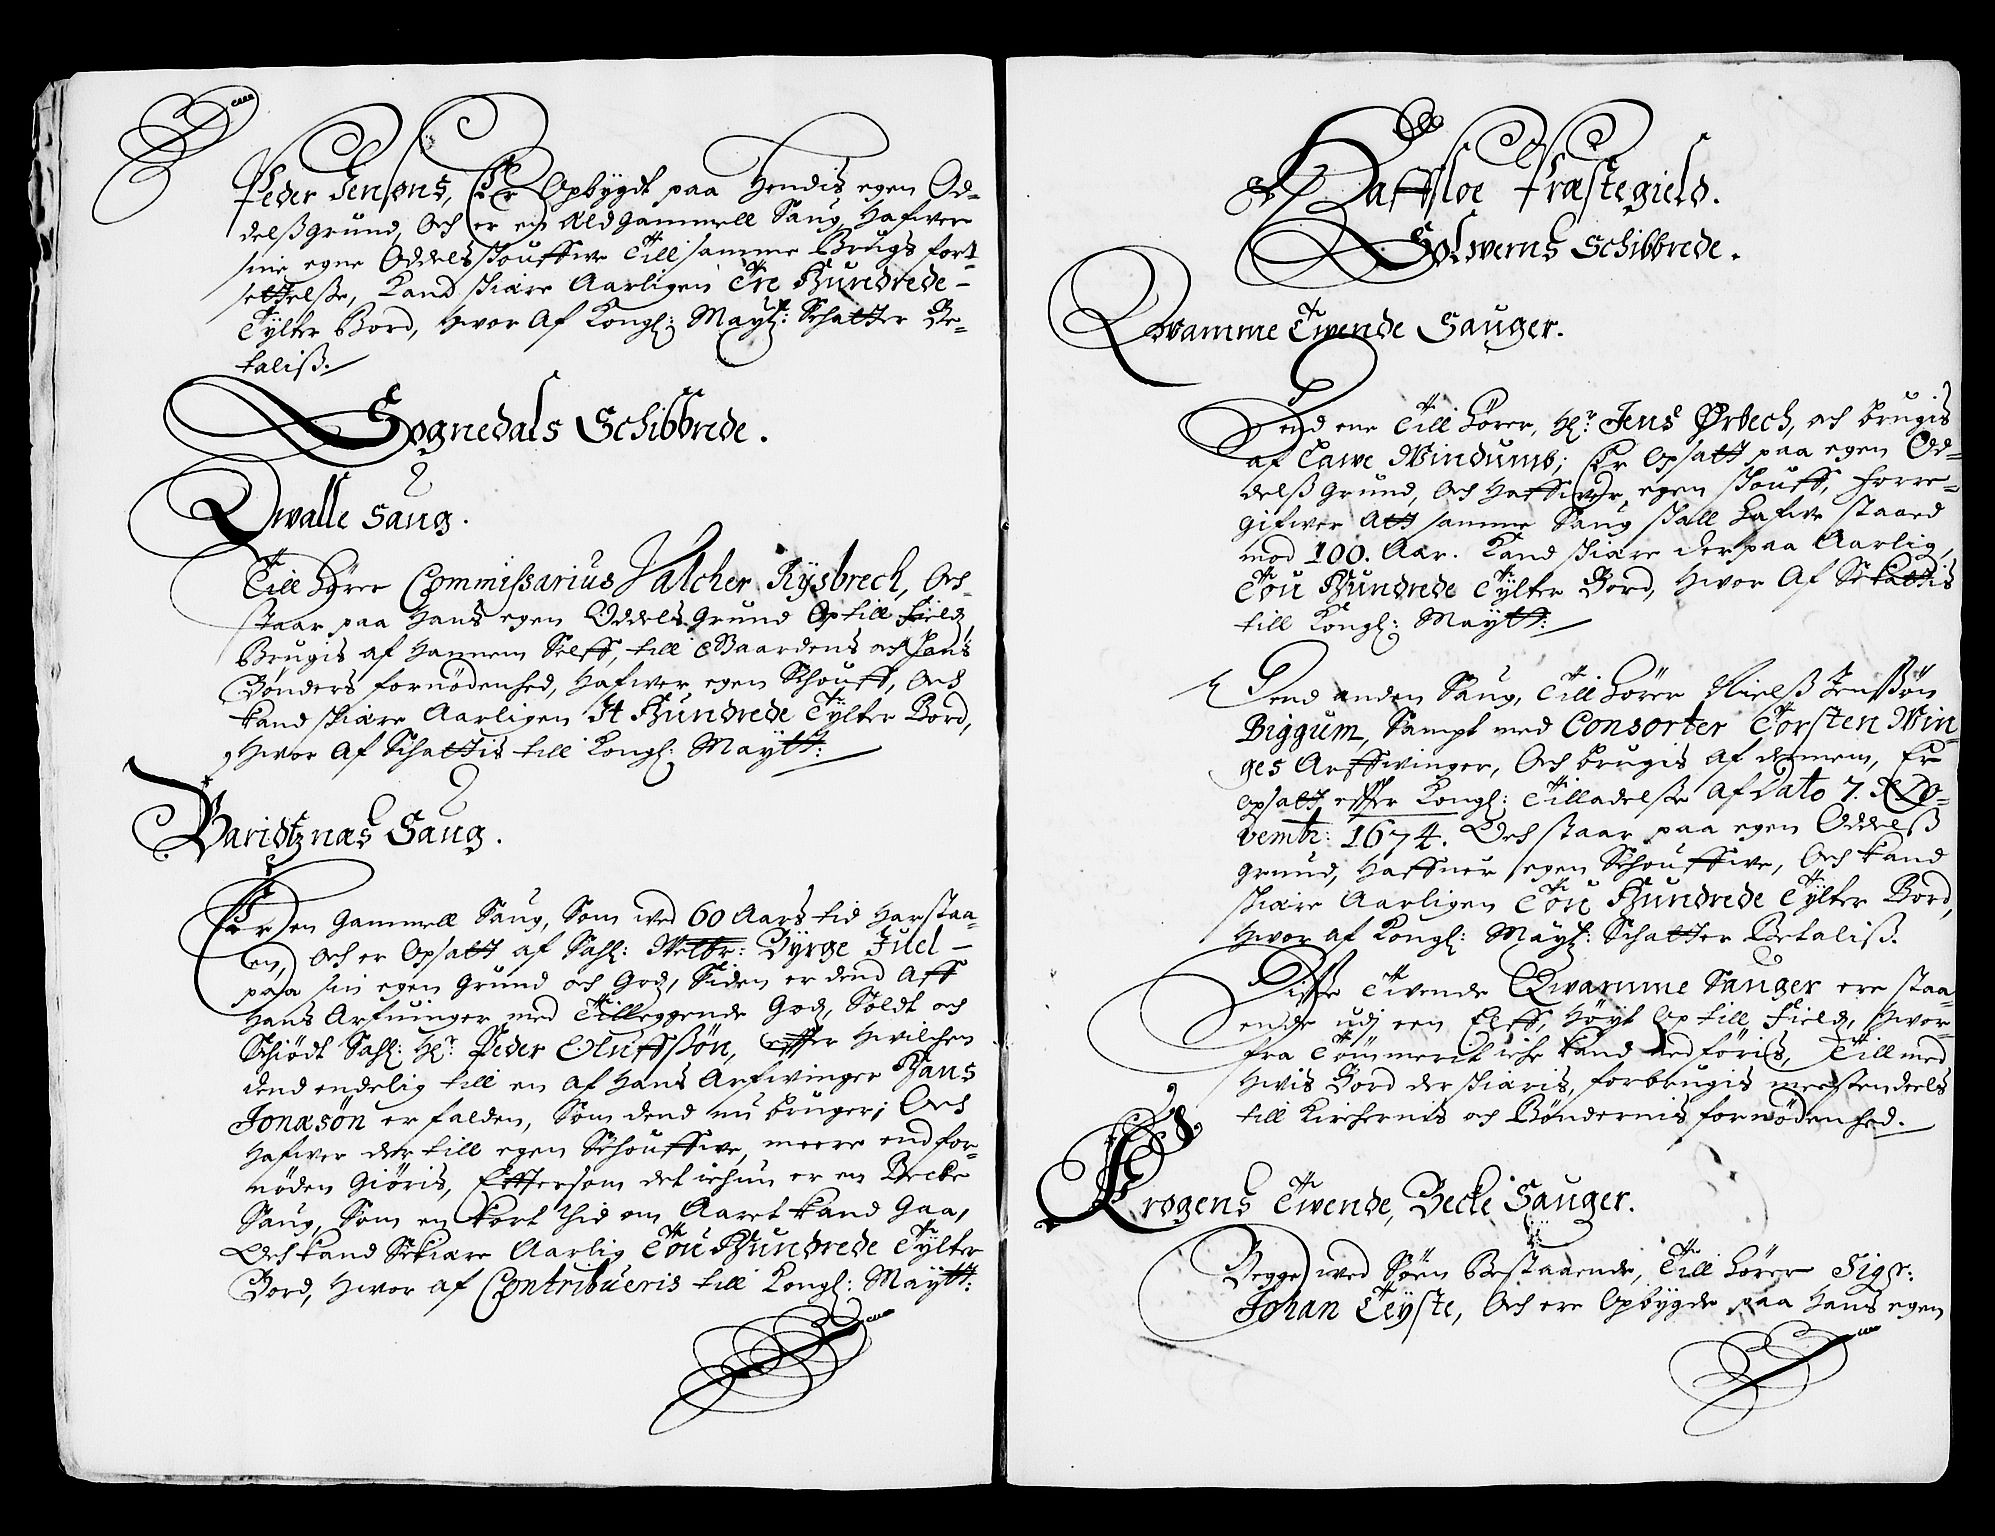 Peder Jensøns, Er Opbygdt paa Hendis egen Od-
delß grund, Och er en Ald gammell Saug, Hafwer
sine egne Oddels skouffwe Till samme Brugs fort-
settelse, Kand skiære Aarligen Tre Hundrede -
Tylter Bord, Hwor Af Kongl: Maytt: Schatter Be-
taliß.
Sognedals Schibbrede.
Qwalle Saug.
Till hører Commissarius Valcher Rysbrech, Och
staar paa Hans egen Oddels Grund Op till Field,
Brugis af Hannem Self, till Gaardens och Hans
Bønders fornødenhed, Hafwer egen Schouff, Och
kand skiære Aarligen It Hundrede Tylter Bord,
Hwor Af Schattis till Kongl: Maytt:
Baridtznæs Saug.
Er en Gammell Saug, Som wed 60 Aars tid Har staa-
en, Och er Opsatt af Sahl: Welbr: Byrge Juel -
paa sin egen Grund och Godz, Siden er dend Aff
Hans Arfuinger med Tilleggende Godz, Soldt och
Schiødt Sahl: Hr: Peder Oluffssøn, effter Hwilchen
dend endelig till en af Hans Arfwinger Hans
Jonæsøn er falden, Som dend nu bruger; Och
Hafwer der till egen Schouffwe, meere end for-
nøden Giøris, Efftersom det ichun er en Becke
Saug, Som en kort thid om Aaret kand Gaa,
Och kand Schiære Aarlig Tou Hundrede Tylter
Bord, Hwor af Contribueris till Kongl: Maytt:
Haffsloe Præstegield.
Solwerns Schibbrede.
Qwamme Twende Sauger.
Dend ene Till hører, Hr: Jens Ørbech, och brugis
af Lawe Windumb; Er Opsatt paa egen Od-
delß Grund, Och Haffwer egen skouff, forre-
gifwer Att samme Saug skall hafwe staaed
mod 100. Aar. Kand skiære der paa Aarlig,
Tou Hundrede Tylter Bord, Hwor Af Schattis
till Kongl: Maytt:
Dend anden Saug, Till hører Nielß Jenssøn
Biggum, Sampt med Consorter Torsten Win-
ges Arffwinger, Och brugis Af dennem, Er
opsatt effter Kongl: Tilladelße Af Dato 7. No-
vembr: 1674. Och staar paa egen Oddelß
grund, Haffuer egen Schouffwe, Och kand
skiære Aarligen Tou Hundrede Tylter Bord,
Hwor af Kongl: Maytt: Schatter Betaliß.
Disse Twende Qwamme Sauger ere staa-
ende udj een Elff, Høyt Op till Field, Hwor-
fra Tømmerit iche kand nedføris, Till med
Hwis Bord der skiæris, forbrugis meestendeels
till Kirchernis och Bøndernis fornødenhed.
Krogens Twende, Becke Sauger.
Begge wed Søen Bestaaende, Till hører Sigr:
Johan Teyste, Och ere Opbygde paa Hans egen